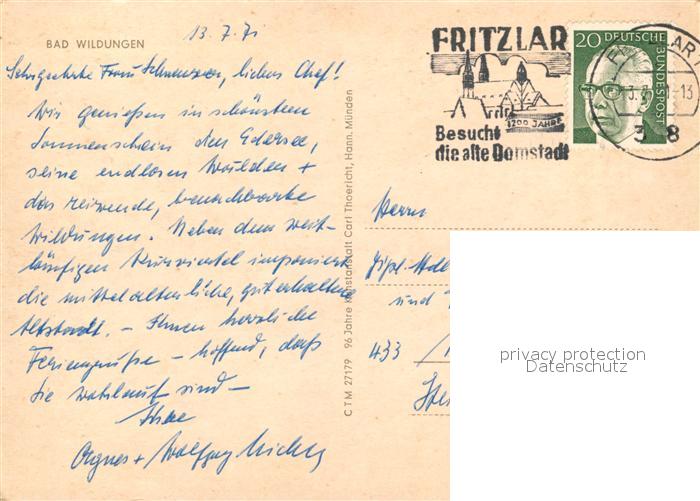 BAD WILDUNGEN
13.7.71
Sehrgeehrte Frau, liebes Chef!
Wir genießen im schönsten
Sonnenschein den Edersee,
seine endlosen Wälder +
das reizende, benachbarte
Wildungen. Neben dem weit-
läufigen Kurviertel imponiert
die mittelalterliche, guterhaltene
Altstadt. - Ihnen herzliche
Feriengrüße - hoffend, daß
Sie wohlauf sind -
Ihre
Agnes + Wolfgang
CTM 27179 96 Jahre Kunstanstalt Carl Thoericht, Hann. Münden
FRITZLAR
1200 JAHRE
Besucht
die alte Domstadt
20 DEUTSCHE
BUNDESPOST
-13
3 8
Herrn
und
433
privacy protection
Datenschutz